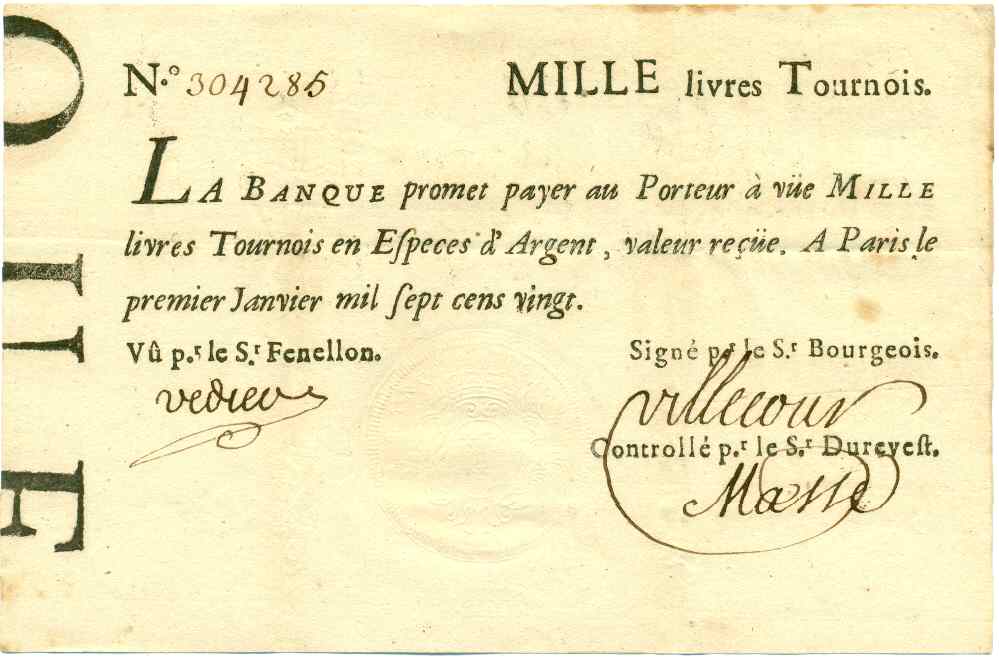 N.º 304285 MILLE livres Tournois.
LA BANQUE promet payer au Porteur à vüe MILLE
livres Tournois en Eſpeces d'Argent, valeur reçüe. A Paris le
premier Janvier mil ſept cens vingt.
Vû p.r le S.r Fenellon. Signé p.r le S.r Bourgeois.
villecour
Controllé p.r le S.r Dureveſt.